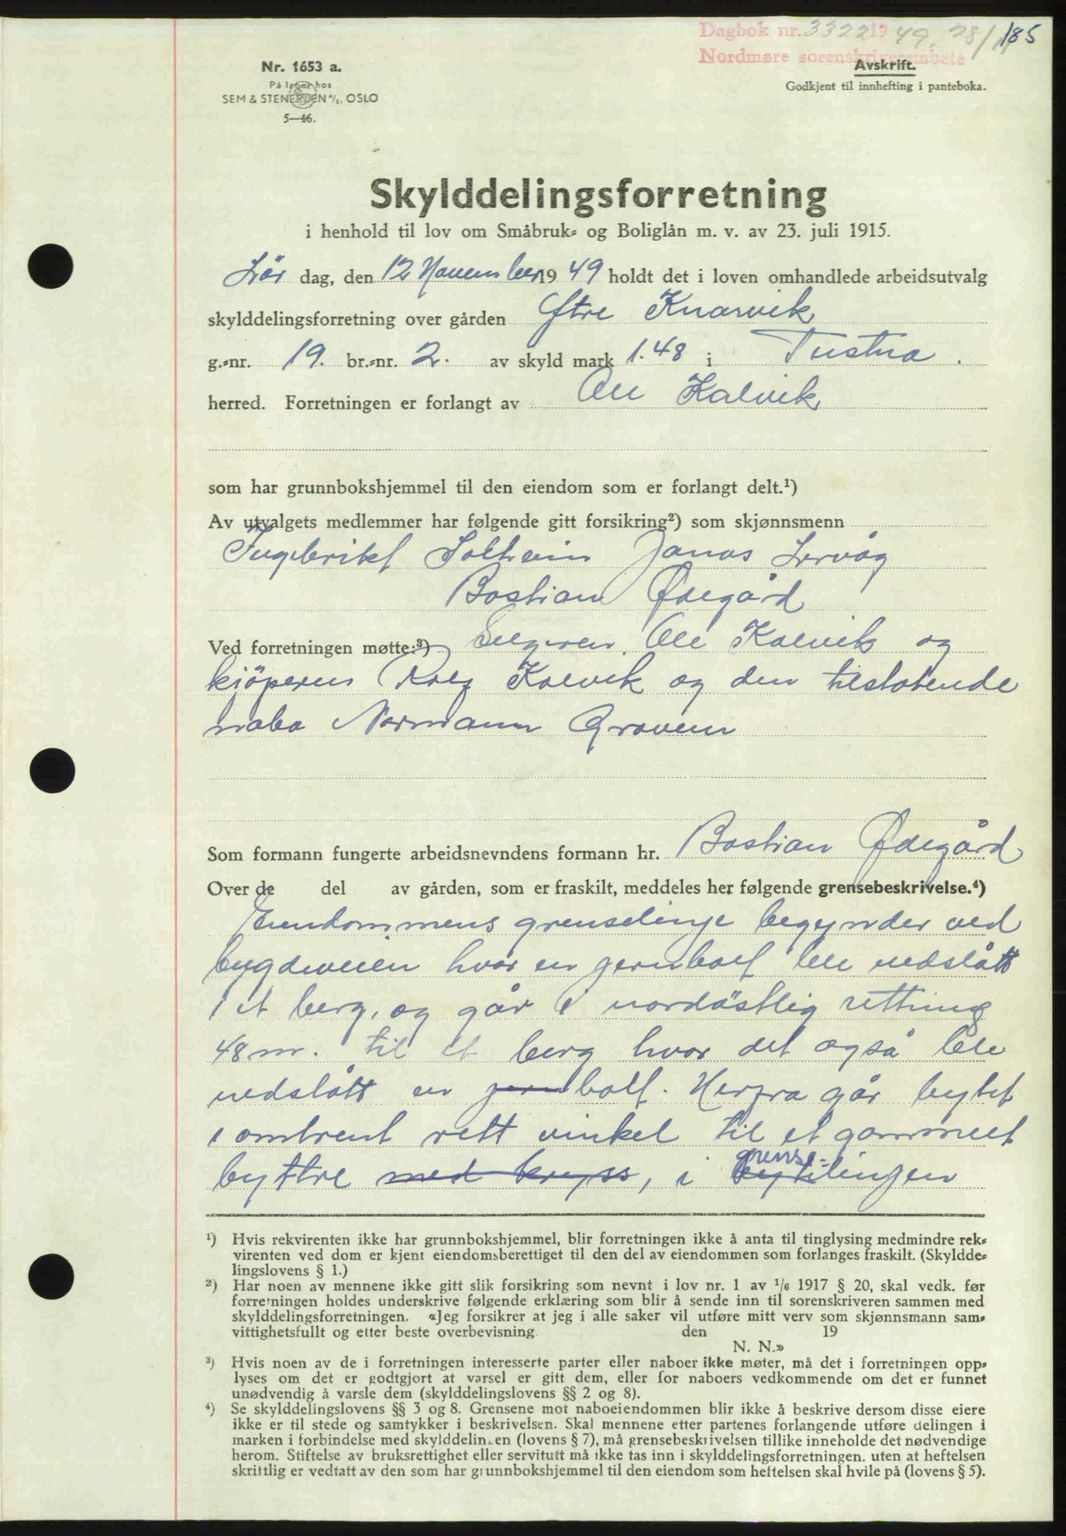 Dagbok nr. 3322 19 49, 28/11 185
Nordmøre sorenskriverembete
Nr. 1653 a.
På lager hos
SEM & STENERSEN A/S, OSLO
5—46.
Avskrift.
Godkjent til innhefting i panteboka.
Skylddelingsforretning
i henhold til lov om Småbruk- og Boliglån m. v. av 23. juli 1915.
Lör dag, den 12 November 19 49 holdt det i loven omhandlede arbeidsutvalg
skylddelingsforretning over gården Ytre Knarvik
g.-nr. 19. br.-nr. 2. av skyld mark 1.48 i Tustna.
herred. Forretningen er forlangt av Ole Kalvik
som har grunnbokshjemmel til den eiendom som er forlangt delt.¹)
Av utvalgets medlemmer har følgende gitt forsikring²) som skjønnsmenn
Ingebrikt Solheim Jonas Lervåg
Bastian Ødegård
Ved forretningen møtte:³) Selgeren, Ole Kalvik og
kjöperen Rolf Kalvik og den tilstötende
nabo Normann Gravem
Som formann fungerte arbeidsnevndens formann hr. Bastian Ødegård
Over de del av gården, som er fraskilt, meddeles her følgende grensebeskrivelse.⁴)
Eiendommens grenselinje begynder ved
bygdeveien hvor en jernbolt ble nedslått
i et berg, og går i nordöstlig rettning
48 m. til et berg hvor det også ble
nedslått en jernbolt. Herfra går bytet
i omtrent rett vinkel til et gammelt
byttre med kryss, i bytilingen
grense-
¹) Hvis rekvirenten ikke har grunnbokshjemmel, blir forretningen ikke å anta til tinglysing medmindre rek-
virenten ved dom er kjent eiendomsberettiget til den del av eiendommen som forlanges fraskilt. (Skyldde-
lingslovens § 1.)
²) Har noen av mennene ikke gitt slik forsikring som nevnt i lov nr. 1 av 1/6 1917 § 20, skal vedk. før
forretningen holdes underskrive følgende erklæring som blir å sende inn til sorenskriveren sammen med
skylddelingsforretningen. «Jeg forsikrer at jeg i alle saker vil utføre mitt verv som skjønnsmann sam-
vittighetsfullt og etter beste overbevisning den 19
N. N.»
³) Hvis noen av de i forretningen interesserte parter eller naboer ikke møter, må det i forretningen opp-
lyses om det er godtgjort at varsel er gitt dem, eller for naboers vedkommende om det er funnet
unødvendig å varsle dem (skylddelingslovens §§ 2 og 8).
⁴) Se skylddelingslovens §§ 3 og 8. Grensene mot naboeiendommen blir ikke å beskrive dersom disse eiere
ikke er til stede og samtykker i beskrivelsen. Skal mennene etter partenes forlangende utføre delingen i
marken i forbindelse med skylddelingen (lovens § 7), må grensebeskrivelsen tillike inneholde det nødvendige
herom. Stiftelse av bruksrettighet eller servitutt må ikke tas inn i skylddelingsforretningen. uten at heftelsen
skriftlig er vedtatt av den som har grunnbokshjemmel til den eiendom som heftelsen skal hvile på (lovens § 5).